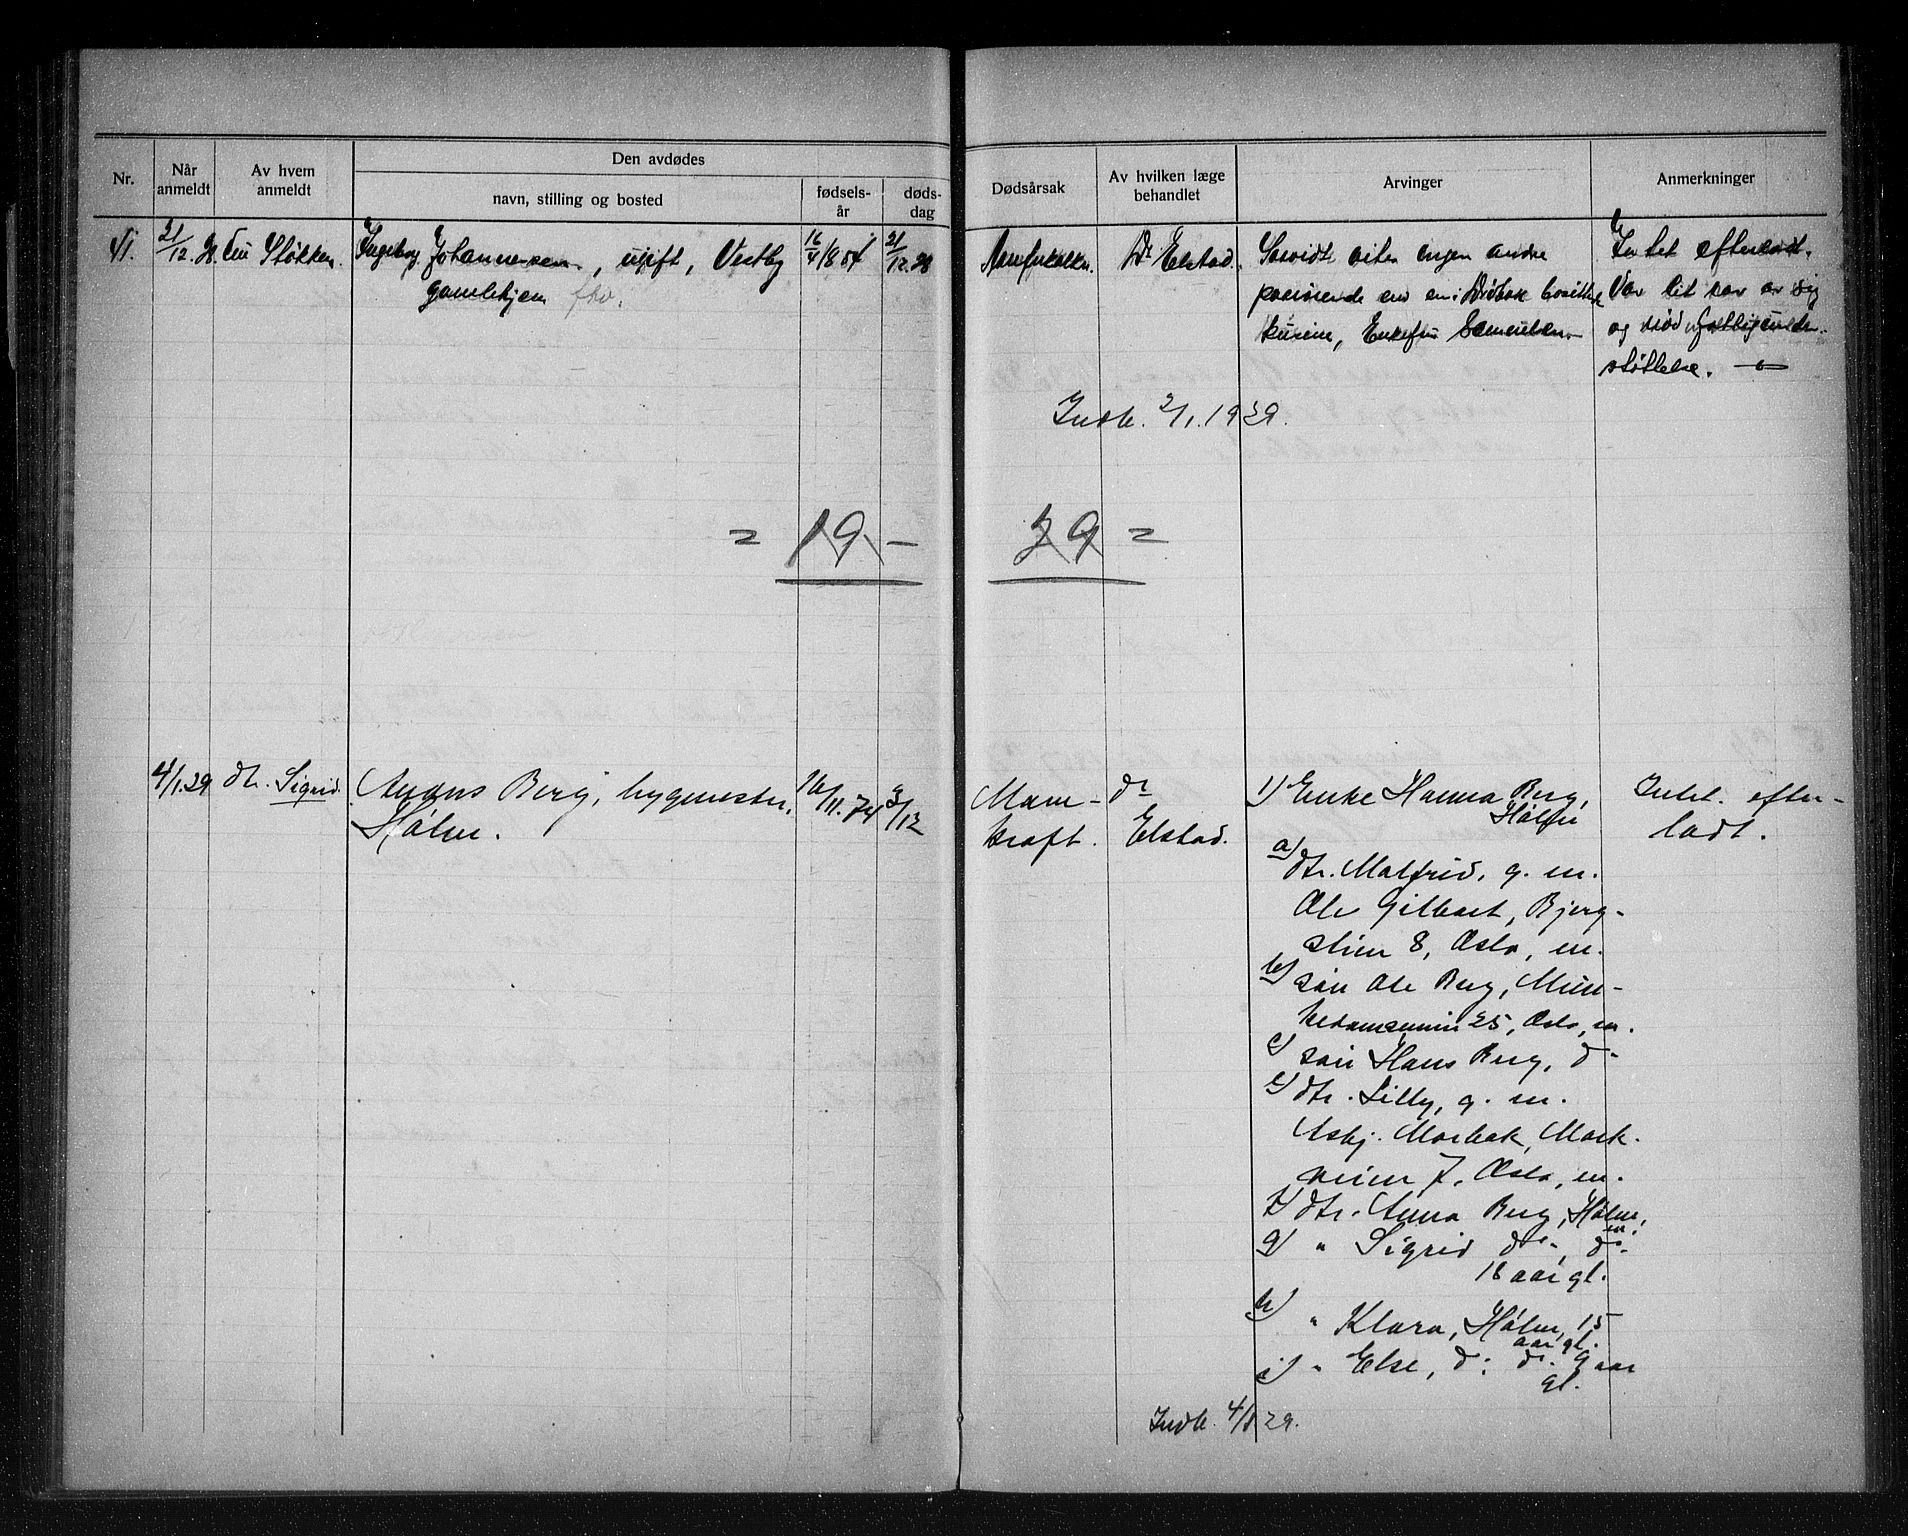 Nr.
Når anmeldt
Av hvem anmeldt
Den avdødes
navn, stilling og bosted
fødsels-år
døds-dag
Dødsårsak
Av hvilken læge behandlet
Arvinger
Anmerkninger
21/12.28
Støkken.
Ingeborg Johannesen, ugift, Vestby
gamlehjem
16/4 1854
21/12.28
Dr Elstad.
Saavidt vites ingen andre
end en i Drøbak bosittende
kusine, Enkefru Samuelsen
Intet efterladt.
Var lit rar av sig
og nød fattigunder-
støttelse.
Indb. 2/1. 1929.
= 19 -
29 =
4/1.29
dtr. Sigrid.
Anders Berg, bygmester,
Hølen.
16/11.74
3/12
Mave-
kræft.
dr
Elstad.
1) Enke Hanna Berg,
Hølen
a) dtr. Malfrid, g. m.
Ole Gilbert, Bjerg-
stien 8, Oslo, m.
b) søn Ole Berg, Mun-
kedamsveien 25, Oslo, m.
c) søn Hans Berg, do
e) dtr. Lilly, g. m.
Asbj. Morbak, Mark-
veien 7, Oslo, m.
f) dtr. Anna Berg, Hølen,
m.
g) " Sigrid do, do
18 aar gl.
h) " Klara, Hølen, 15
aar gl.
i) " Else, d: do. 9 aar
gl.
Intet efter-
ladt.
Indb. 4/1 29.